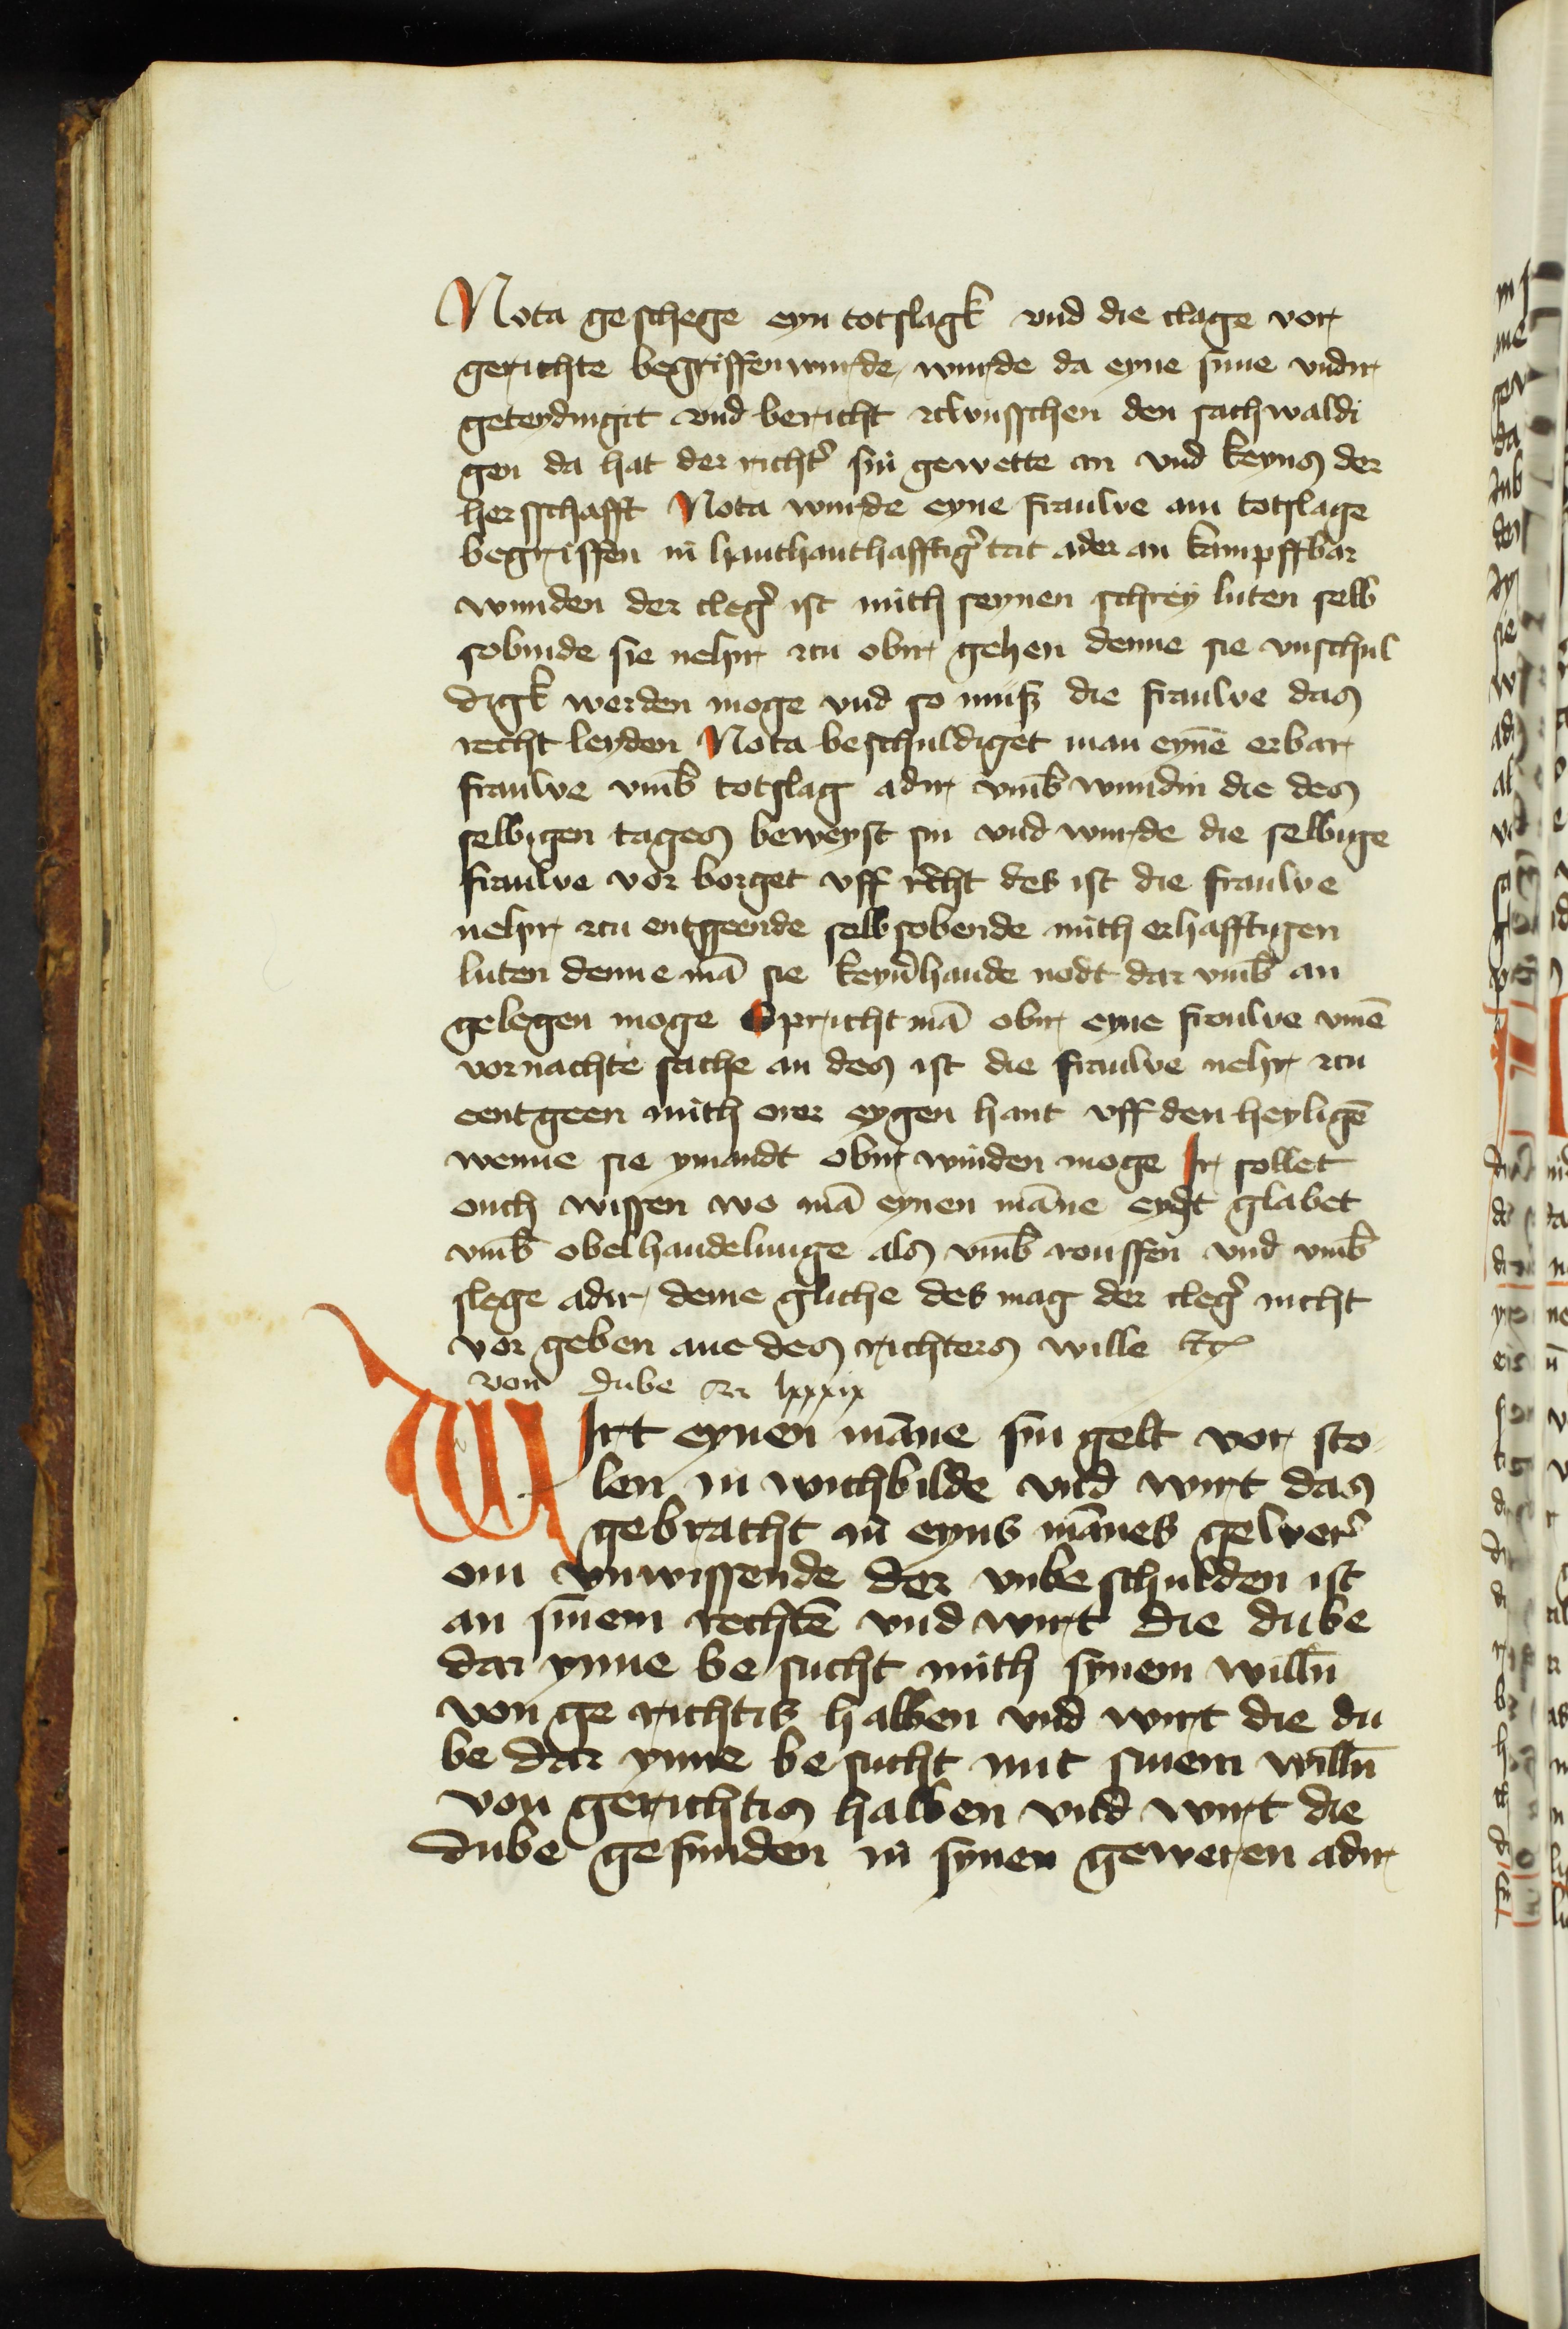 Nota geschege eyn totslagk vnd die clage vor
gerichte begriffen wurde wurde da eyne sune vndir
geteydingit vnd bericht zcwusschen den sachwaldi
gen da hat der richt᾽ sin gewette an vnd keyns der
hersschafft Nota wurde eyne frauwe am totslage
begriffen in hanthanthafftig᾽ tat ader an kampffbar
wunden der cleg᾽ ist mith seynen schrey luten selb
sobinde sie nehir zcu obir gehen denne sie vnschul
digk werden moge vnd so muß die frauwe das
recht leyden Nota beschuldiget man eynē erbar
frauwe vm̄b totslag adir vm̄b wundin die des
selbigen tages beweyst sin vnd wurde die selbige
frauwe vor borget vff recht des ist die frauwe
nehir zcu entgeende selbsobende mith erhafftigen
luten denne mā sie keyn᾽hande nodt dar vm̄b an
gelegen moge Spricht mā obir eyne frouwe vmē
vornachte sache an des ist die frauwe nehir zcu
eentgeen mith orer eygen hant vff den heyligē
wenne sie ymandt obir winden moge Ir sollet
ouch wissen wo mā eynen māne eydt glabet
vm̄b obelhandelunge als vm̄b rouffen vnd vm̄b
slege adir deme gliche des mag der cleg᾽ nicht
vor geben ane des richters wille etc
von dube lxxxix
WIrt eynen māne sin gelt vor sto
len in wichbilde vnd wirt das
gebracht in eyns mānes gewer᾽
om vnwissende der vnbeschulden ist
an sinem rechtē vnd wirt die dube
dar ynne be sucht mith synem willn̄
von ge richtis halben vnd wirt die du
be dar ynne be sucht mit sinem willn̄
von gerichtis halben vnd wirt die
dube gefunden in synen geweren adir